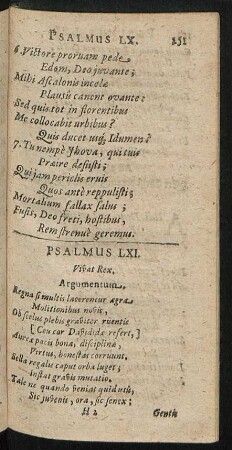 PSALMUS LX. 151
6. Victore proruam pede
Edom, Deo juvante;
Mihi Ascalonis incolæ
Plausu canent ovante:
Sed quis tot in florentibus
Me collocabit urbibus?
Quis ducet usq; Idumen?
7. Tu nempè Jhova, qui tuis
Præire desiisti;
Qui jam periclis eruis
Quos antè reppulisti;
Mortalium fallax salus;
Fusis, Deo freti, hostibus,
Rem strenuè geremus.
PSALMUS LXI.
Vivat Rex.
Argumentum.
Regna si multis laverentur agra
Molitionibus novis,
Ob scelus plebis graviter ruentis
[Ceu cor Davididæ refert,]
Aurea pacis bona, disciplinæ,
Virtus, honestas corruunt.
Sella regalis caput orba luget;
Instat gravis mutatio.
Tale ne quando veniat quid
Sic juvenis, ora, sic senex;
H 2 Gentis